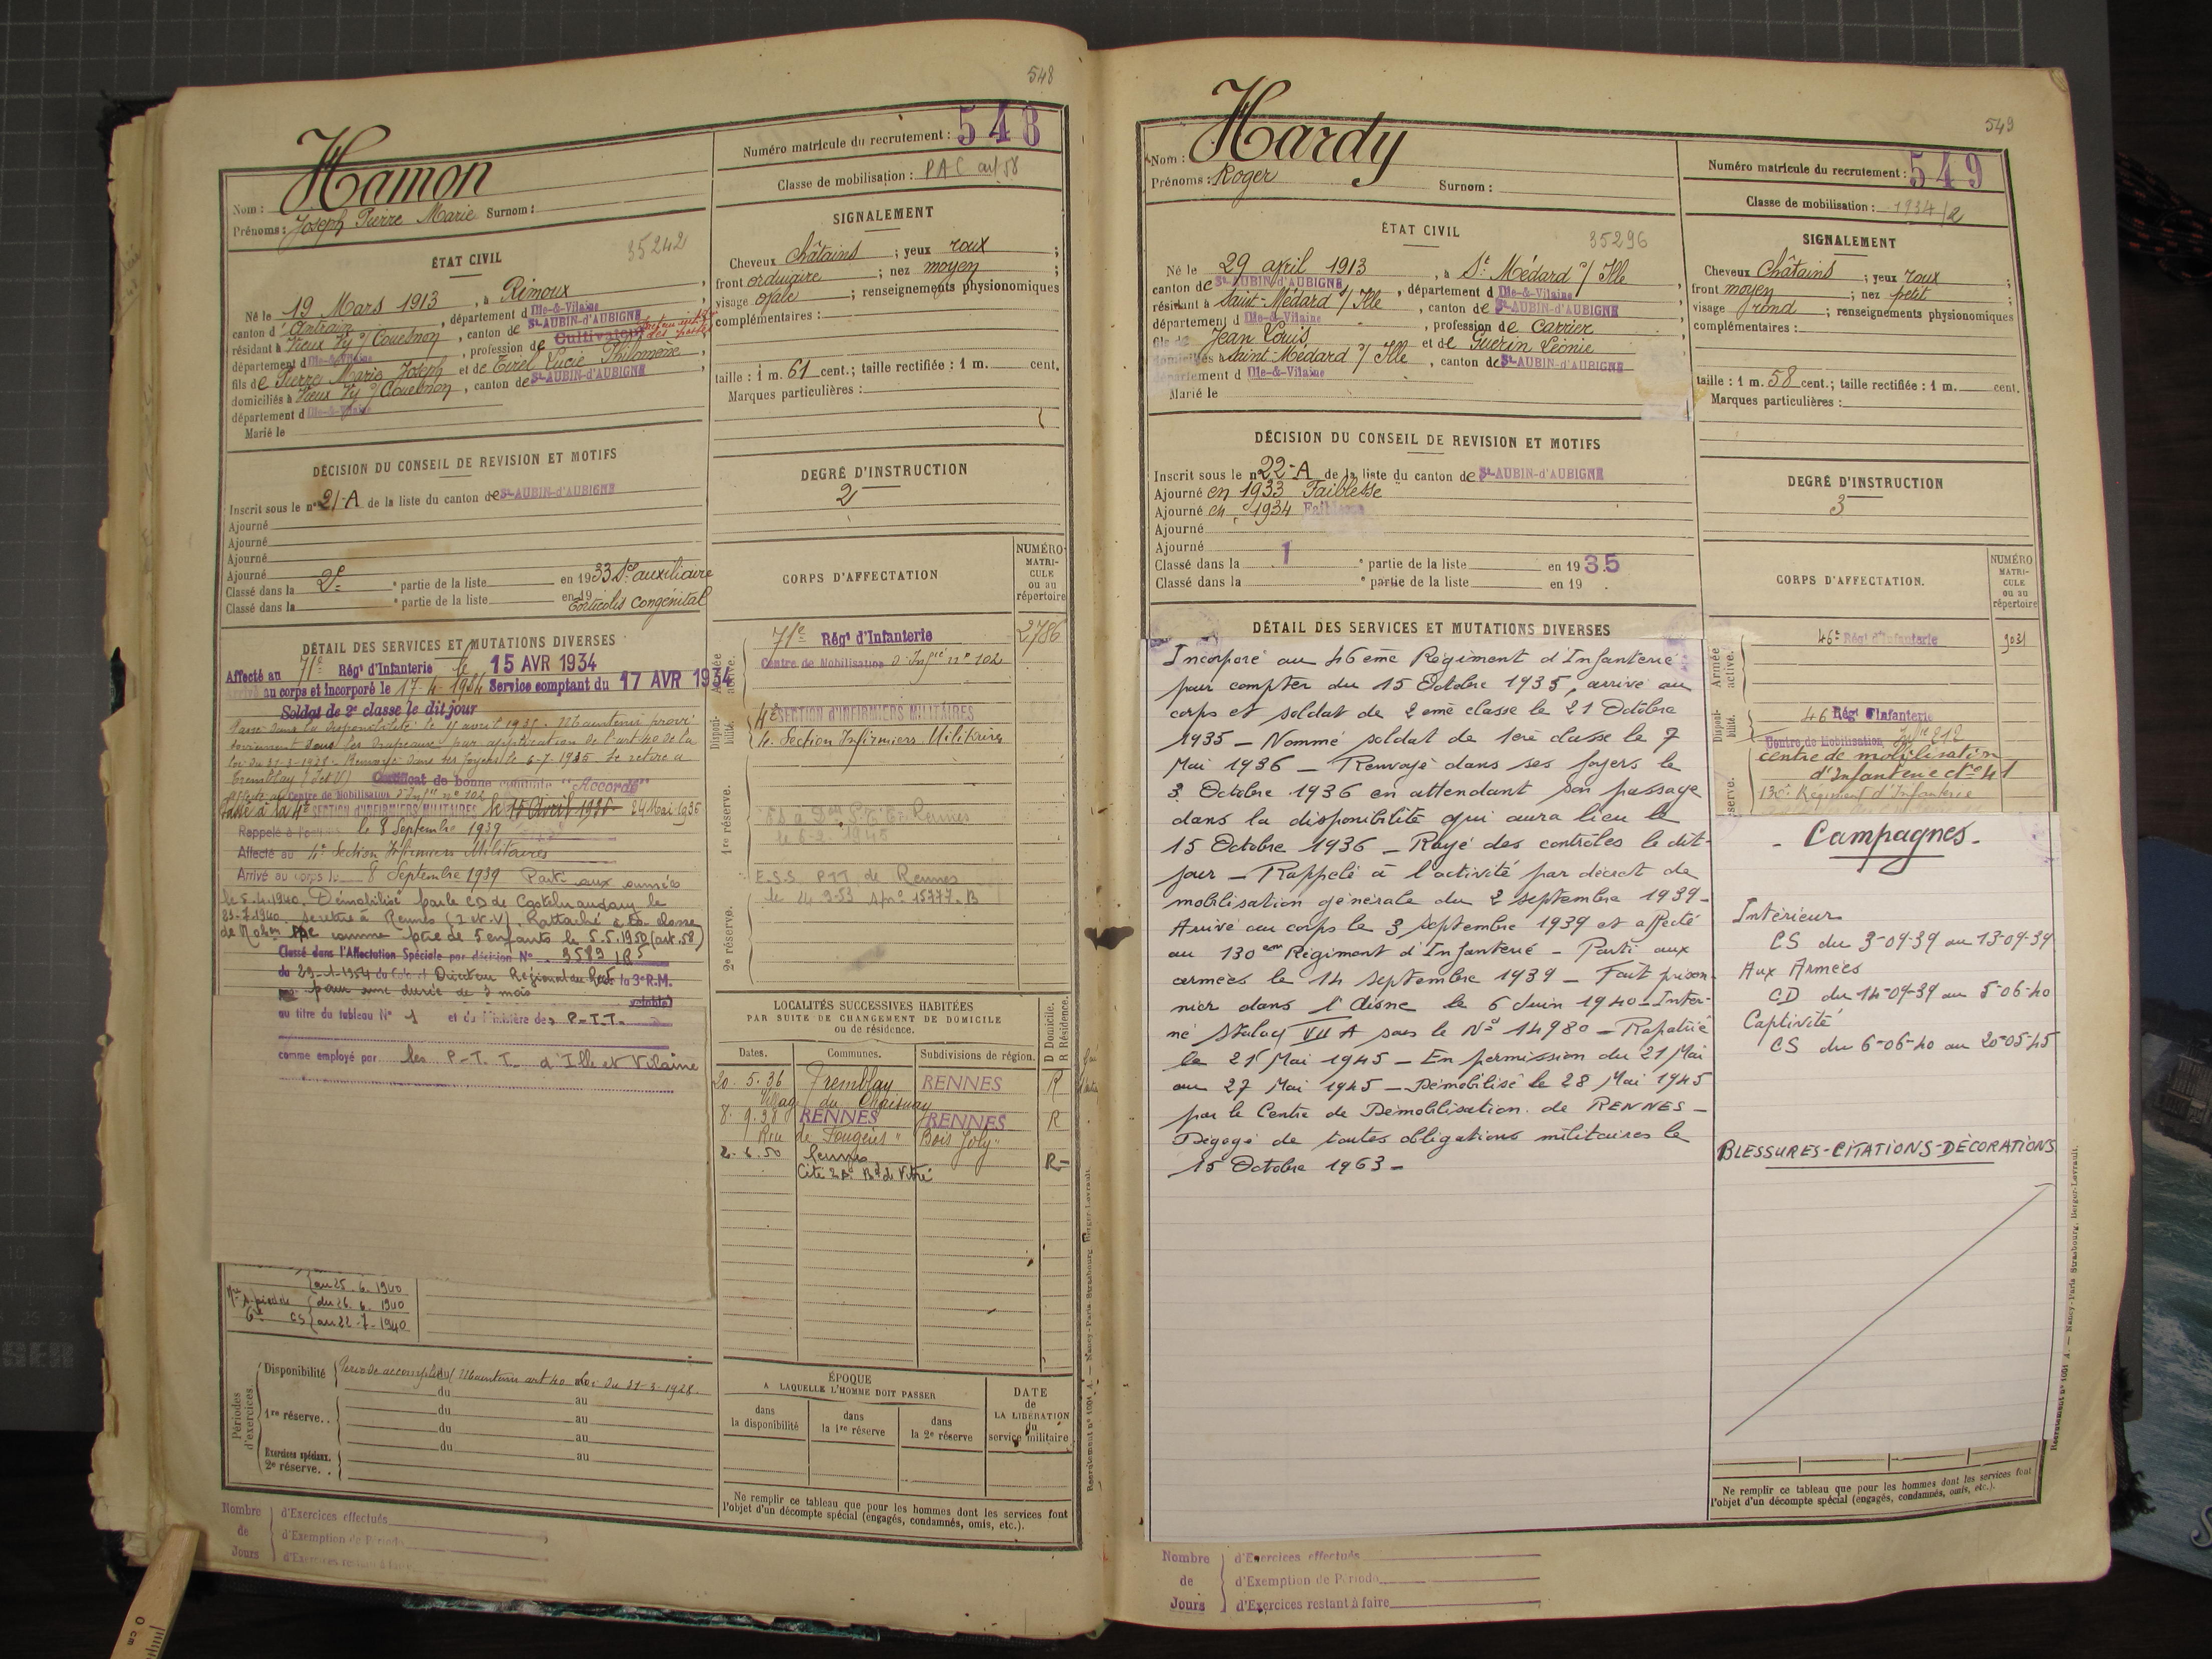 548
Hamon
Nom :
Prénoms : Joseph Pierre Marie Surnom :
Numéro matricule du recrutement : 548
Classe de mobilisation : PAC art 58
ÉTAT CIVIL
35242
Né le 19 Mars 1913, à Rimoux
canton d'Antrain, département d Ille-&-Vilaine
résidant à Vieux Vy s/ Couesnon, canton de St-AUBIN-d'AUBIGNÉ
département d Ille-&-Vilaine, profession de Cultivateur
fils de Pierre Marie Joseph et de Tirel Lucie Philomène
domiciliés à Vieux Vy s/ Couesnon, canton de St-AUBIN-d'AUBIGNÉ
département d Ille-&-Vilaine
Marié le
SIGNALEMENT
Cheveux châtains ; yeux roux ;
front ordinaire ; nez moyen ;
visage ovale ; renseignements physionomiques
complémentaires :
taille : 1 m. 61 cent.; taille rectifiée : 1 m. cent.
Marques particulières :
DÉCISION DU CONSEIL DE REVISION ET MOTIFS
Inscrit sous le n° 21-A de la liste du canton de St-AUBIN-d'AUBIGNÉ
Ajourné
Ajourné
Ajourné
Ajourné
Classé dans la 2e partie de la liste en 1933 Sce auxiliaire
Classé dans la " partie de la liste en 19
Torticolis congénital
DEGRÉ D'INSTRUCTION
2
CORPS D'AFFECTATION
NUMÉRO MATRI-CULE ou au répertoire
Armée active.
71e Régt d'Infanterie 2786
Centre de Mobilisation d'Infrie n° 102
Disponi-bilité.
4e SECTION D'INFIRMIERS MILITAIRES
4e Section Infirmiers Militaires
1re réserve.
le 6-9-1945
2e réserve.
E.S.S. PTT de Rennes
DÉTAIL DES SERVICES ET MUTATIONS DIVERSES
Affecté au 71e Régt d'Infanterie le 15 AVR 1934
Arrivé au corps et incorporé le 17-4-1934 Service comptant du 17 AVR 1934
Soldat de 2e classe le dit jour
Passé dans la disponibilité le 15 avril 1935. Maintenu provi
soirement sous les drapeaux par application de l'art 40 de la
loi du 31-3-1928. Renvoyé dans ses foyers le 6-7-1935 Se retire à
Tremblay (I et V) Certificat de bonne conduite "Accordé"
Affecté au Centre de Mobilisation d'Infie n° 102
Passé à la 4e SECTION D'INFIRMIERS MILITAIRES le 15 Avril 1936 24 Mai 1936
Rappelé à l'activité le 8 Septembre 1939
Affecté au 4e Section Infirmiers Militaires
Arrivé au corps le 8 Septembre 1939 Parti aux armées
le 5.4.1940. Démobilisé par le CD de Castelnaudary le
23-7-1940. se retire à Rennes (I et V). Rattaché à la classe
de Mobon PAC comme père de 5 enfants le 5.5.1950 (art. 58)
Classé dans l'Affectation Spéciale par décision N° 3583 IR5
du 29-1-1954 du Directeur Régional du Rect la 3e R.M.
pour une durée de 3 mois
au titre du tableau N° 1 et du Ministère des P.T.T.
comme employé par les P.T.T. d'Ille et Vilaine
au 25.6.1940
du 26.6.1940
CS au 22-7-1940
LOCALITÉS SUCCESSIVES HABITÉES
PAR SUITE DE CHANGEMENT DE DOMICILE
ou de résidence.
D Domicile. R Résidence.
Dates. Communes. Subdivisions de région.
20.5.36 Tremblay RENNES R
Village du Chaisnay
8.9.38 RENNES RENNES R
Rue de Fougères "Bois Joly"
2.6.50 Rennes R
Cité Bd de Vitré
Périodes d'exercices.
Disponibilité Période accomplie (Maintenu art 40 Loi du 31-3-1928.
du au
1re réserve. . du au
du au
Exercices spéciaux. du au
2e réserve. .
ÉPOQUE
A LAQUELLE L'HOMME DOIT PASSER
dans la disponibilité
dans la 1re réserve
dans la 2e réserve
DATE de LA LIBÉRATION du service militaire
Ne remplir ce tableau que pour les hommes dont les services font
l'objet d'un décompte spécial (engagés, condamnés, omis, etc.).
Nombre de Jours
d'Exercices effectués
d'Exemption de Période
d'Exercices restant à faire
Recrutement n° 1001 A. — Nancy-Paris-Strasbourg, Berger-Levrault.
549
Hardy
Nom :
Prénoms : Roger Surnom :
Numéro matricule du recrutement : 549
Classe de mobilisation : 1934/2
ÉTAT CIVIL
35296
Né le 29 avril 1913, à St Médard s/ Ille
canton de St-AUBIN-d'AUBIGNÉ, département d Ille-&-Vilaine
résidant à Saint-Médard s/ Ille, canton de St-AUBIN-d'AUBIGNÉ
département d Ille-&-Vilaine, profession de Carrier
fils de Jean Louis et de Guérin Léonie
domiciliés à Saint-Médard s/ Ille, canton de St-AUBIN-d'AUBIGNÉ
département d Ille-&-Vilaine
Marié le
SIGNALEMENT
Cheveux châtains ; yeux roux
front moyen ; nez petit
visage rond ; renseignements physionomiques
complémentaires :
taille : 1 m. 58 cent.; taille rectifiée : 1 m. cent.
Marques particulières :
DÉCISION DU CONSEIL DE REVISION ET MOTIFS
Inscrit sous le n° 22-A de la liste du canton de St-AUBIN-d'AUBIGNÉ
Ajourné en 1933 Faiblesse
Ajourné en 1934 Faiblesse
Ajourné
Ajourné
Classé dans la 1 " partie de la liste en 1935
Classé dans la " partie de la liste en 19
DEGRÉ D'INSTRUCTION
3
CORPS D'AFFECTATION.
NUMÉRO MATRI-CULE ou au répertoire
Armée active.
46e Régt d'Infanterie 9031
Disponi-bilité.
46 Régt d'Infanterie
Centre de Mobilisation Infie 212
centre de mobilisation
d'Infanterie n° 41
130e Régiment d'Infanterie
DÉTAIL DES SERVICES ET MUTATIONS DIVERSES
Incorporé au 46ème Régiment d'Infanterie
pour compter du 15 Octobre 1935, arrivé au
corps et soldat de 2ème classe le 21 Octobre
1935 — Nommé soldat de 1ère classe le 7
Mai 1936 — Renvoyé dans ses foyers le
3 Octobre 1936 en attendant son passage
dans la disponibilité qui aura lieu le
15 Octobre 1936 — Rayé des contrôles le dit-
jour — Rappelé à l'activité par décret de
mobilisation générale du 2 septembre 1939 —
Arrivé au corps le 3 septembre 1939 et affecté
au 130em Régiment d'Infanterie — Parti aux
armées le 14 septembre 1939 — Fait prison-
nier dans l'Aisne le 6 Juin 1940 — Inter-
né Stalag VII A sous le No 14980 — Rapatrié
le 21 Mai 1945 — En permission du 21 Mai
au 27 Mai 1945 — Démobilisé le 28 Mai 1945
par le Centre de Démobilisation de RENNES —
Dégagé de toutes obligations militaires le
15 Octobre 1963 —
- Campagnes -
Intérieur
CS du 3-09-39 au 13-09-39
Aux Armées
CD du 14-09-39 au 5-06-40
Captivité
CS du 6-06-40 au 20-05-45
BLESSURES-CITATIONS-DÉCORATIONS
Ne remplir ce tableau que pour les hommes dont les services font
l'objet d'un décompte spécial (engagés, condamnés, omis, etc.).
Nombre de Jours
d'Exercices effectués
d'Exemption de Période
d'Exercices restant à faire
Recrutement n° 1001 A. — Nancy-Paris-Strasbourg, Berger-Levrault.